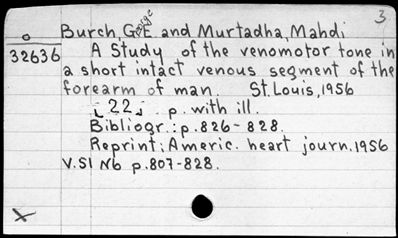 3
Burch, George E. and Murtadha, Mahdi
o
32636
A Study of the venomotor tone in
a short intact venous segment of the
forearm of man. St. Louis, 1956
[22] p. with ill.
Bibliogr.: p. 826-828.
Reprint: Americ. heart journ. 1956
V. 51 N6 p. 807-828.
X